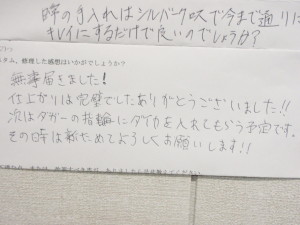 時の手入れはシルバークロスで今まで通りに
キレイにするだけで良いのでしょうか？
スタム、修理した感想はいかがでしょうか？
無事届きました！
仕上がりは完璧でしたありがとうございました!!
次はダガーの指輪にダイヤを入れてもらう予定です。
その時は改ためてよろしくお願いします!!